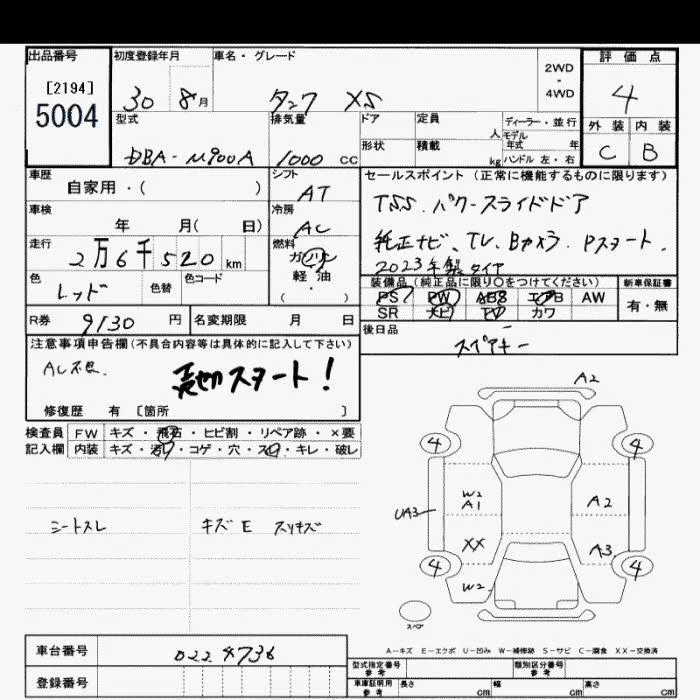 出品番号
初度登録年月
車名・グレード
評価点
[2194]
5004
30 8月
タンク XS
2WD
・
4WD
4
型式
排気量
ドア
定員
人
ディーラー・並行
モデル
年式 年
外装
内装
DBA-M900A
1000 cc
形状
積載
kg
ハンドル 左・右
C
B
車歴
自家用・( )
シフト
AT
セールスポイント (正常に機能するものに限ります)
TSS. パワースライドドア
車検
年 月( 日)
冷房
AC
純正ナビ、TV、Bカメラ. Pスタート.
走行
2万6千520km
燃料
ガソリン
軽油
( ・ )
2023年製タイヤ
色
レッド
色替
色コード
装備品 (純正品に限り〇をつけてください)
新車保証書
PS PW ABS エアB AW
SR ナビ TV カワ
有・無
R券
9130 円
名変期限 月 日
後日品
スペアキー
注意事項申告欄(不具合内容等は具体的に記入して下さい)
売切スタート!
修復歴 有 [箇所 ]
検査員
記入欄
FW
キズ・飛石・ヒビ割・リペア跡・×要
内装
キズ・汚れ・コゲ・穴・スレ・キレ・破レ
シートスレ
キズE スリキズ
A2
4
4
W2
A1
A2
UA3
XX
A3
4
4
W2
スペア
A-キズ E-エクボ U-凹み W-補修跡 S-サビ C-腐食 XX-交換済
車台番号
0224736
登録番号
型式指定番号
参考
類別区分番号
参考
車庫証明用
参考
長さ cm
幅 cm
高さ cm